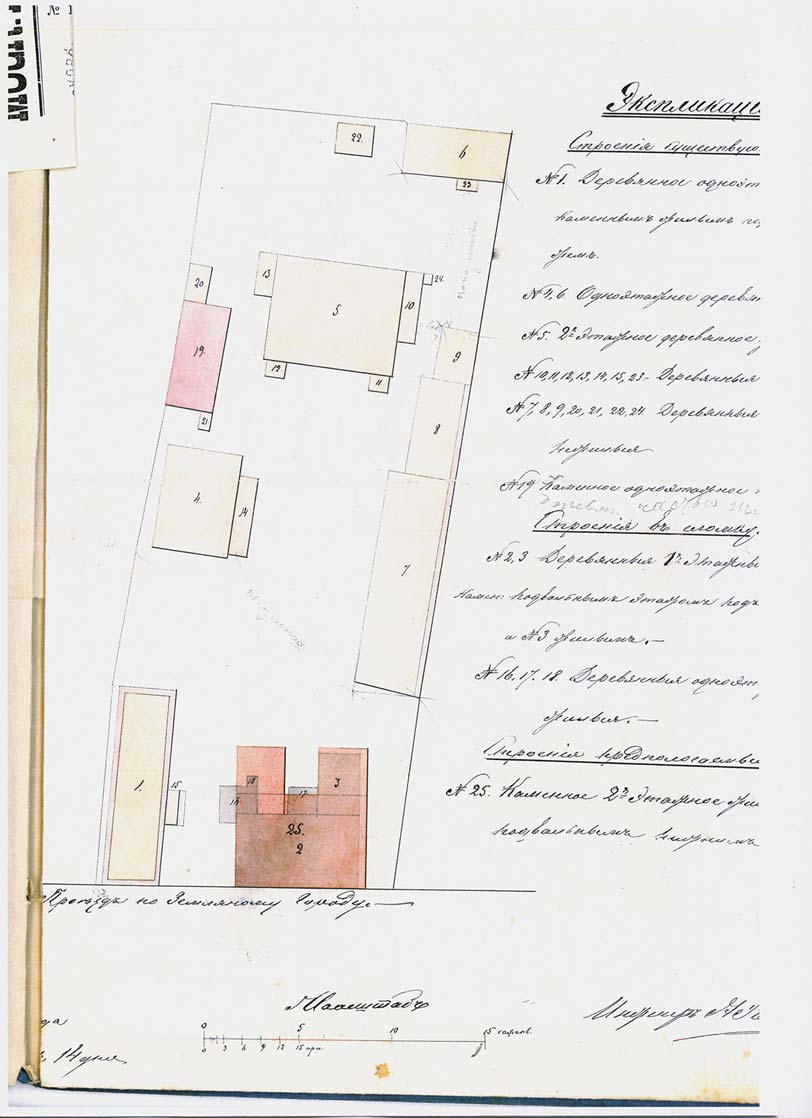 № 1
Экспликаці
Строенія существую
№1. Деревянное одноэт
каменнымъ жилымъ по
жилъ.
№4,6. Одноэтажное дерев
№5. 2хъ этажное деревянное
№10,11,12,13,14,15,23– Деревянныя
№7, 8, 9, 20, 21, 22,24 Деревянныя
нежилыя
№19 Каменное одноэтажное
Дерев. частью
Строенія въ сломку.
№2,3 Деревянныя 1но этажны
камен: подвальнымъ этажомъ подъ
и №3 жилымъ.–
№16,17.18. Деревянныя одноэт
жилыя.–
Строенія предпологаемы
№25. Каменное 2хъ этажное жи
подвальнымъ
22.
6
23
13
5
10
24.
20
19.
12
11
9
21
8
4.
14
7
1.
15
18
16
17
3
25.
2
Проѣздъ по Земляному Городу.
Масштабъ
0 5 10 15 сажень.
0 3 6 9 12 15 арш.
Инженеръ
14 дня